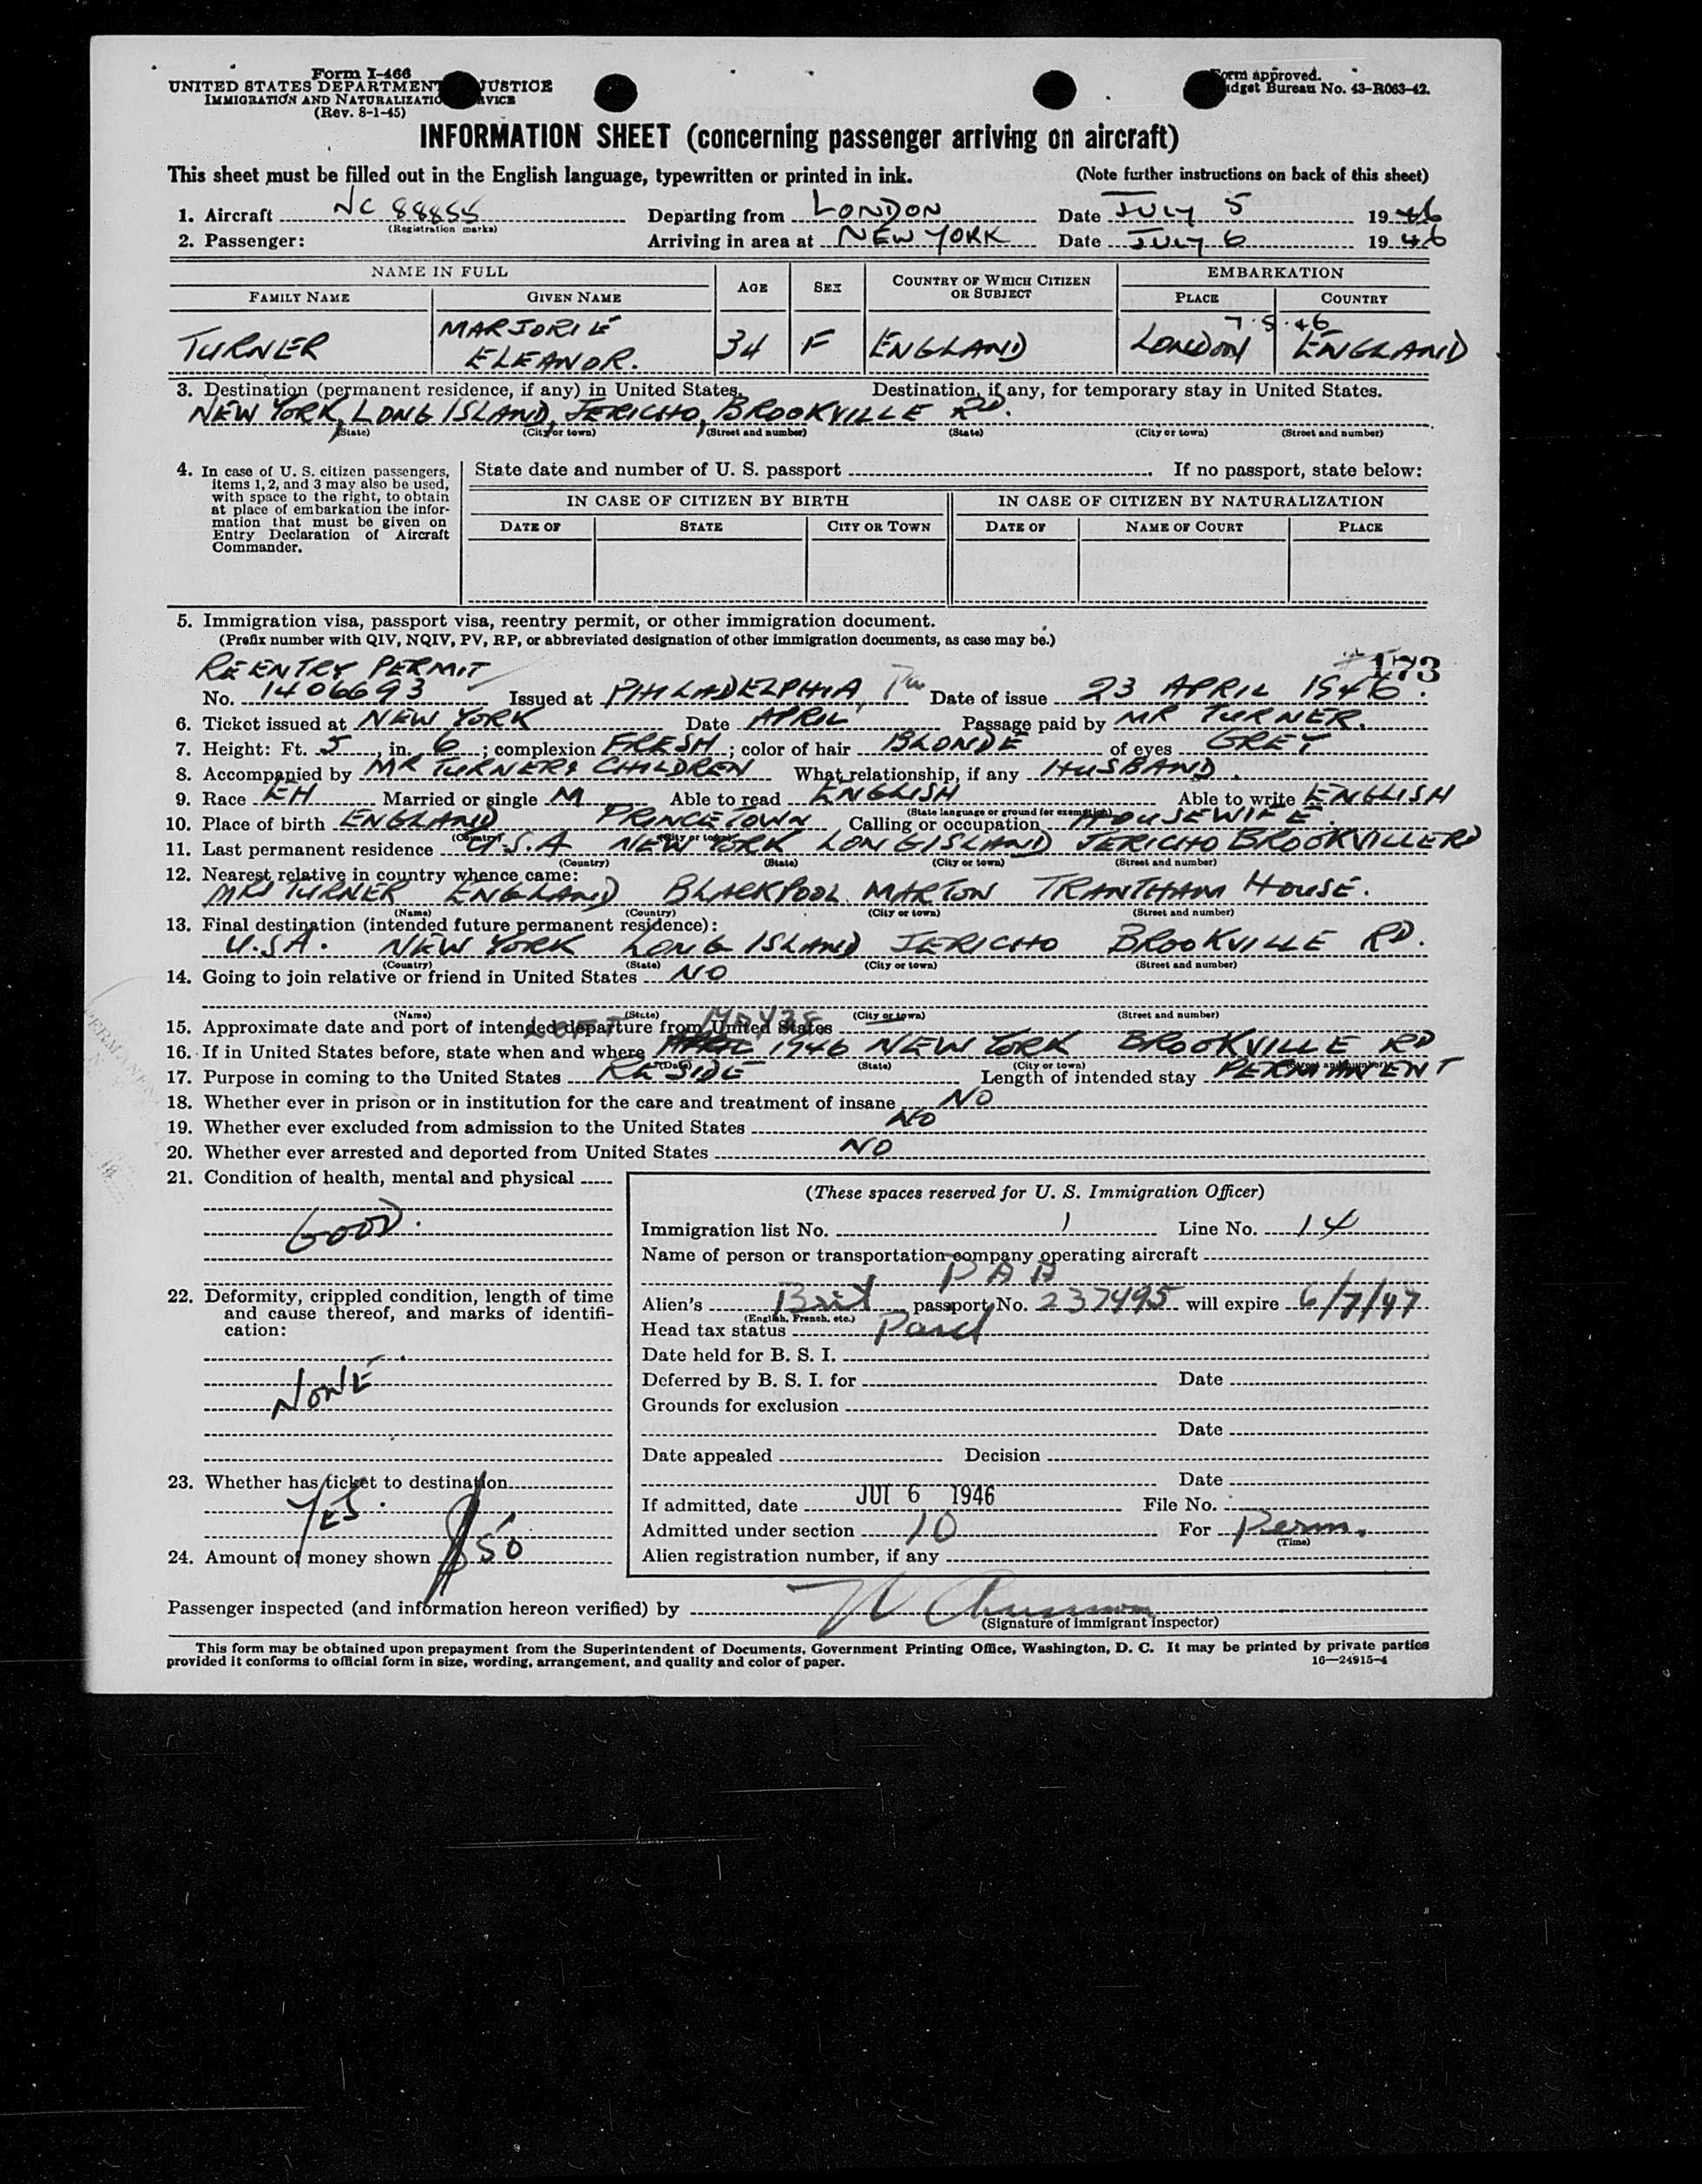 Form I-466
UNITED STATES DEPARTMENT JUSTICE
IMMIGRATION AND NATURALIZATIO RVICE
(Rev. 8-1-45)
orm approved.
dget Bureau No. 43-R063-42.
INFORMATION SHEET (concerning passenger arriving on aircraft)
This sheet must be filled out in the English language, typewritten or printed in ink. (Note further instructions on back of this sheet)
1. Aircraft NC 88855 Departing from LONDON Date JULY 5 1946
(Registration marks)
2. Passenger: Arriving in area at NEW YORK Date JULY 6 1946
NAME IN FULL AGE SEX COUNTRY OF WHICH CITIZEN OR SUBJECT EMBARKATION
FAMILY NAME GIVEN NAME PLACE COUNTRY
7.5.46
TURNER MARJORIE ELEANOR. 34 F ENGLAND LONDON ENGLAND
3. Destination (permanent residence, if any) in United States. Destination, if any, for temporary stay in United States.
NEW YORK, LONG ISLAND, JERICHO, BROOKVILLE RD.
(State) (City or town) (Street and number) (State) (City or town) (Street and number)
4. In case of U. S. citizen passengers, items 1, 2, and 3 may also be used, with space to the right, to obtain at place of embarkation the information that must be given on Entry Declaration of Aircraft Commander.
State date and number of U. S. passport . If no passport, state below:
IN CASE OF CITIZEN BY BIRTH IN CASE OF CITIZEN BY NATURALIZATION
DATE OF STATE CITY OR TOWN DATE OF NAME OF COURT PLACE
5. Immigration visa, passport visa, reentry permit, or other immigration document.
(Prefix number with QIV, NQIV, PV, RP, or abbreviated designation of other immigration documents, as case may be.)
REENTRY PERMIT 173
No. 1406693 Issued at PHILADELPHIA, Pa Date of issue 23 APRIL 1946.
6. Ticket issued at NEW YORK Date APRIL Passage paid by MR TURNER.
7. Height: Ft. 5, in. 6; complexion FRESH; color of hair BLONDE of eyes GREY
8. Accompanied by MR TURNER & CHILDREN What relationship, if any HUSBAND.
9. Race EH Married or single M Able to read ENGLISH Able to write ENGLISH
(State language or ground for exemption)
10. Place of birth ENGLAND PRINCETOWN Calling or occupation HOUSEWIFE.
(Country) (City or town)
11. Last permanent residence U.S.A NEW YORK LONG ISLAND JERICHO BROOKVILLE RD
(Country) (State) (City or town) (Street and number)
12. Nearest relative in country whence came:
MRS TURNER ENGLAND BLACKPOOL MARTON TRANTHAM HOUSE.
(Name) (Country) (City or town) (Street and number)
13. Final destination (intended future permanent residence):
U.S.A. NEW YORK LONG ISLAND JERICHO BROOKVILLE RD.
(Country) (State) (City or town) (Street and number)
14. Going to join relative or friend in United States NO
(Name) (State) (City or town) (Street and number)
15. Approximate date and port of intended departure from United States
LEFT MAY
16. If in United States before, state when and where 1946 NEW YORK BROOKVILLE RD
(Date) (State) (City or town) (Street and number)
17. Purpose in coming to the United States RESIDE Length of intended stay PERMANENT
18. Whether ever in prison or in institution for the care and treatment of insane NO
19. Whether ever excluded from admission to the United States NO
20. Whether ever arrested and deported from United States NO
21. Condition of health, mental and physical
GOOD.
22. Deformity, crippled condition, length of time and cause thereof, and marks of identification:
NONE
23. Whether has ticket to destination
YES.
24. Amount of money shown $50
(These spaces reserved for U. S. Immigration Officer)
Immigration list No. 1 Line No. 14
Name of person or transportation company operating aircraft
PAA
Alien's Brit passport No. 237495 will expire 6/7/47
(English, French, etc.)
Head tax status Paid
Date held for B. S. I.
Deferred by B. S. I. for Date
Grounds for exclusion
Date
Date appealed Decision
Date
If admitted, date JUL 6 1946 File No.
Admitted under section 10 For Perm.
(Time)
Alien registration number, if any
Passenger inspected (and information hereon verified) by
(Signature of immigrant inspector)
This form may be obtained upon prepayment from the Superintendent of Documents, Government Printing Office, Washington, D. C. It may be printed by private parties
provided it conforms to official form in size, wording, arrangement, and quality and color of paper. 16—24915-4